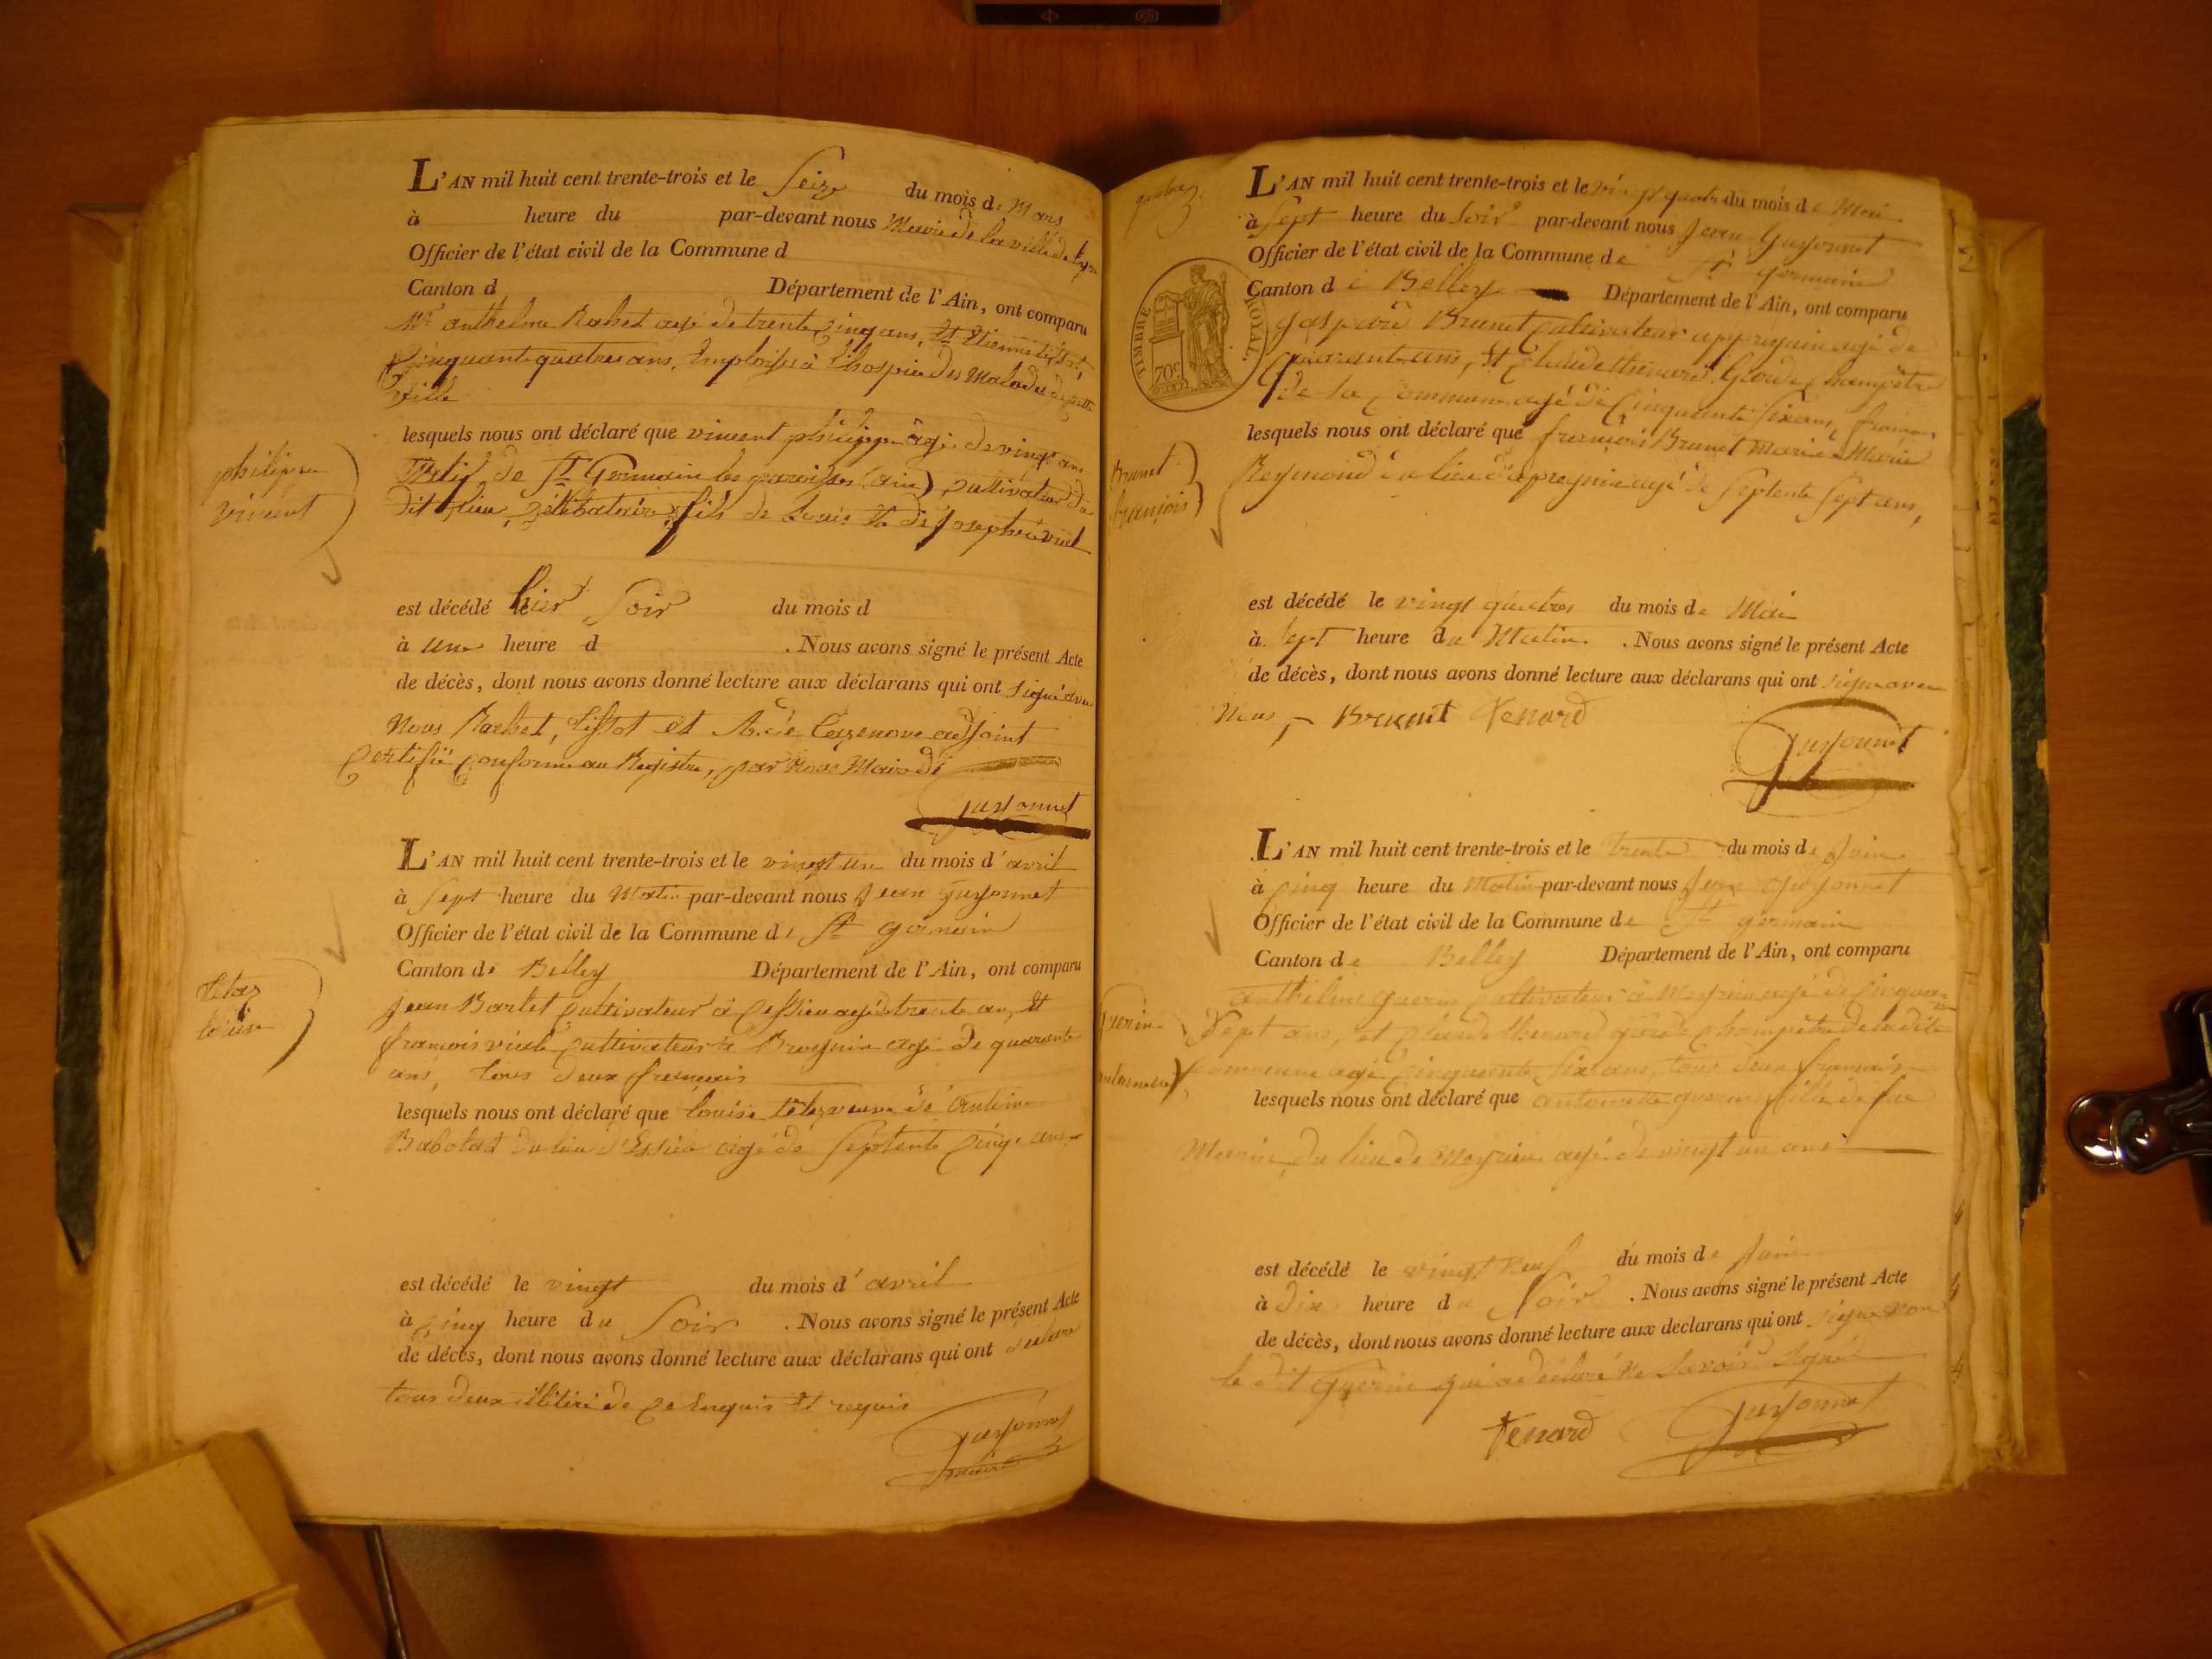 L'AN mil huit cent trente-trois et le Seize du mois de Mars
à heure du par-devant nous Maire de la ville de Lyon
Officier de l'état civil de la Commune d
Canton d Département de l'Ain, ont comparu
Mr anthelme Rachet agé de trente cinq ans, Et Etienne
Cinquante quatres ans, Employés à l'hospice des Malades de cette
Ville
lesquels nous ont déclaré que vincent philippe âgé de vingt ans
Natif de St Germain les paroisses (ain) Cultivateur du
dit lieu, célibataire fils de Louis Et de Josephte
philippe
vincent
est décédé le hier Soir du mois d
à une heure d . Nous avons signé le présent Acte
de décès, dont nous avons donné lecture aux déclarans qui ont signé avec
Nous Rachet, et de Cazenove adjoint
Certifié Conforme au Registre, par Nous Maire de
Guyonnet
L'AN mil huit cent trente-trois et le vingt un du mois d'avril
à Sept heure du Matin par-devant nous Jean Guyonnet
Officier de l'état civil de la Commune de St germain
Canton de Belley Département de l'Ain, ont comparu
Jean Barlet Cultivateur à Cessieu agé de trente an, Et
francois Cultivateur à Brognin agé de quarante
ans, tous deux francais
Louise
lesquels nous ont déclaré que Louise veuve de Antoine
du lieu d'Essieu agé de Septente Cinq ans
est décédé le vingt du mois d'avril
à Cinq heure du Soir . Nous avons signé le présent Acte
de décès, dont nous avons donné lecture aux déclarans qui ont déclaré
tous deux illitéré de Ce Enquis Et requis
Guyonnet
maire
L'AN mil huit cent trente-trois et le vingt quatre du mois de Mai
à Sept heure du Soir par-devant nous Jean Guyonnet
Officier de l'état civil de la Commune de St germain
Canton de Belley Département de l'Ain, ont comparu
TIMBRE ROYAL
70c
gaspard Brunet Cultivateur appregnin agé de
Quarante ans, Et Claude thenard Garde Champêtre
de la Commune agé de Cinquante Six ans, francois
lesquels nous ont déclaré que francois Brunet Marié à Marie
Reymond du lieu d'apregnin agé de Septente Sept ans,
Brunet
francois
est décédé le vingt quatres du mois de Mai
à Sept heure du Matin . Nous avons signé le présent Acte
de décès, dont nous avons donné lecture aux déclarans qui ont signe avec
Nous Brunet Tenard
Guyonnet
L'AN mil huit cent trente-trois et le trente du mois de Juin
à Cinq heure du Matin par-devant nous Jean Guyonnet
Officier de l'état civil de la Commune de St germain
Canton de Belley Département de l'Ain, ont comparu
anthelme guerin Cultivateur à Meyrieu agé de Cinquante
Sept ans, et Claude thenard garde Champêtre de la dite
Commune agé Cinquante Six ans, tous deux francais
lesquels nous ont déclaré que antoinette guerin fille de feu
du lieu de Meyrieu agé de vingt un ans
Guerin
antoinette
est décédé le vingt neuf du mois de Juin
à Dix heure du Soir . Nous avons signé le présent Acte
de décès, dont nous avons donné lecture aux declarans qui ont signe non
le dit Guerin qui a déclaré ne Savoir Signé
Tenard Guyonnet